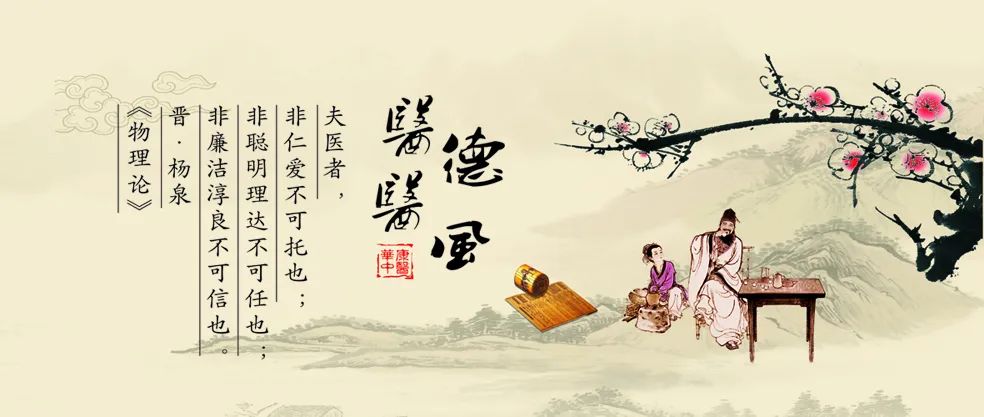 醫德
醫風
康醫
華中
夫医者，
非仁爱不可托也；
非聪明理达不可任也；
非廉洁淳良不可信也。
晋·杨泉
《物理论》